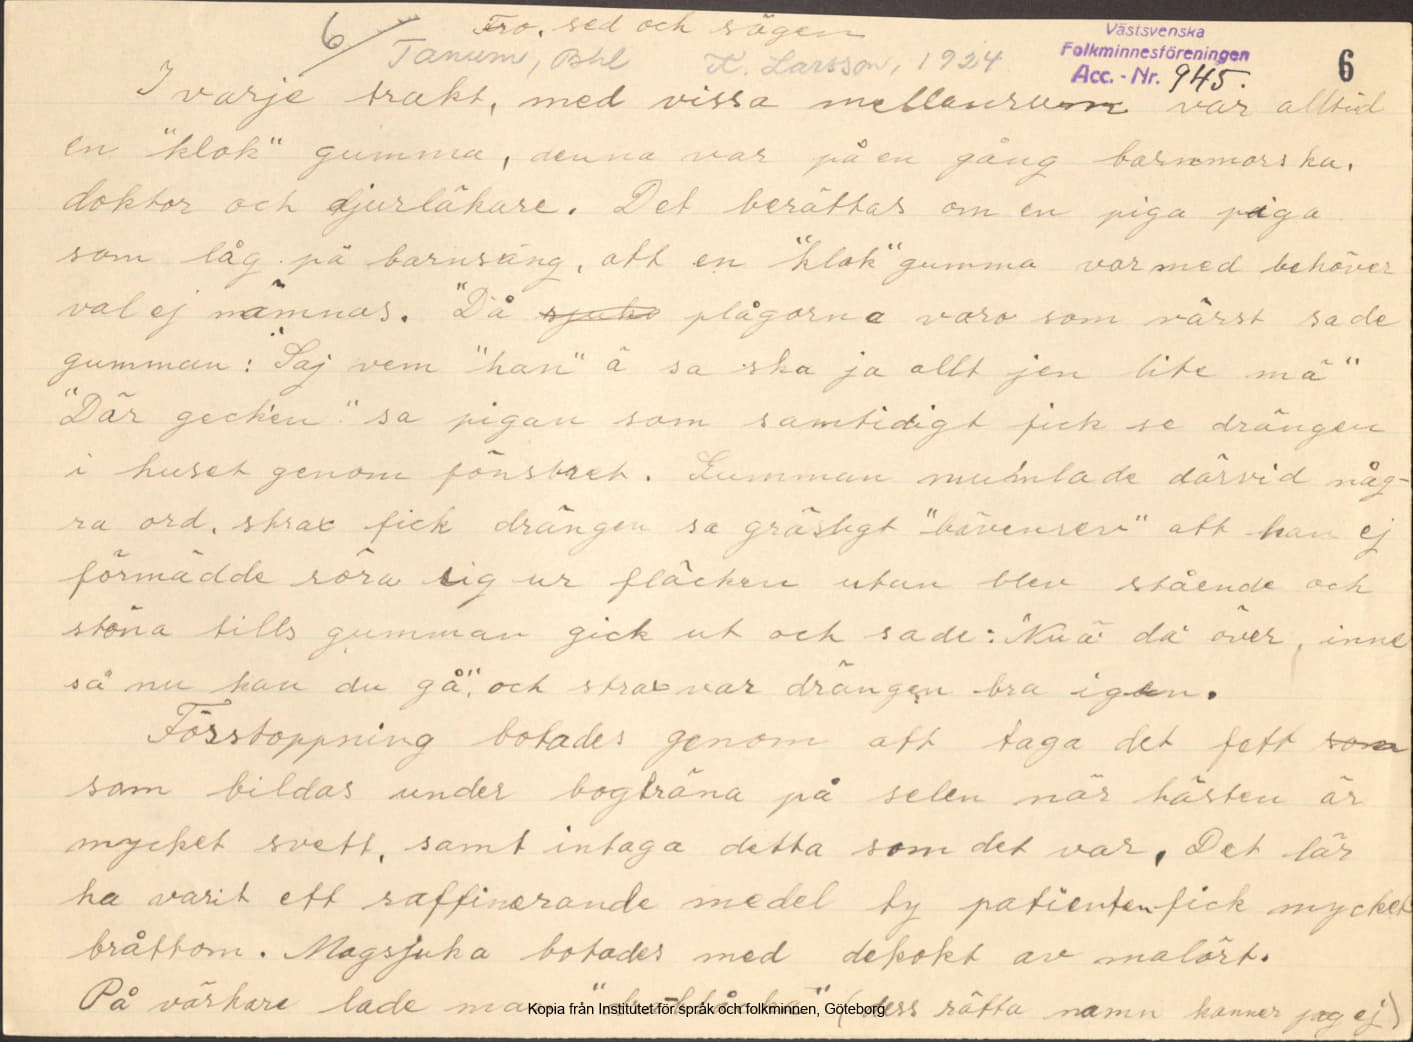 6
Tro, sed och sägen
Tanum, Bhl K. Larsson, 1924
Västsvenska
Folkminnesföreningen
Acc. - Nr. 945.
6
I varje trakt, med vissa mellanrum var alltid
en "klok" gumma, denna var på en gång barnmorska,
doktor och djurläkare. Det berättas om en piga piga
som låg på barnsäng, att en "klok" gumma var med behöver
väl ej nämnas. "Då sjuka plågorna voro som värst sade
gumman: "Saj vem "han" ä sa ska ja allt jen lite mä"
"Där gecken" sa pigan som samtidigt fick se drängen
i huset genom fönstret. Gumman mumlade därvid någ-
ra ord, strax fick drängen sa gräsligt "bävenrev" att han ej
förmådde röra sig ur fläcken utan blev stående och
stöna tills gumman gick ut och sade: "Nu ä dä över, inne
så nu kan du gå", och strax var drängen bra igen.
Förstoppning botades genom att taga det fett som
som bildas under bogträna på selen när hästen är
mycket svett, samt intaga detta som det var, Det lär
ha varit ett raffinerande medel ty patienten fick mycket
bråttom. Magsjuka botades med dekokt av malört.
På värkare lade man (dess rätta namn känner jag ej)
Kopia från Institutet för språk och folkminnen, Göteborg